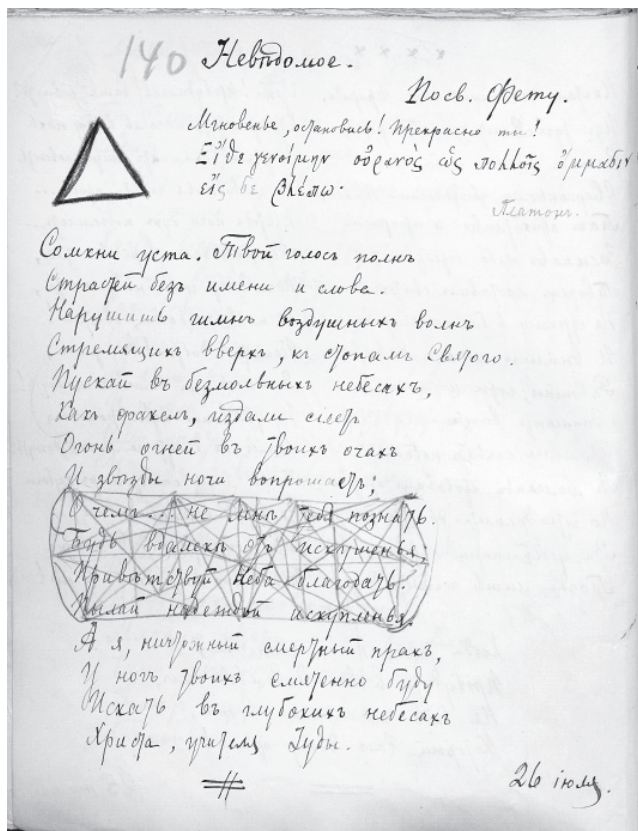 140 Невѣдомое.
Посв. Фету.
Мгновенье, остановись! Прекрасно ты!
Εἴθε γενοίμην οὐρανὸς ὡς πολλοῖς ὄμμασιν
εἰς σε βλέπω.
Платонъ.
Сомкни уста. Твой голосъ полнъ
Страстей безъ имени и слова.
Нарушишь гимнъ воздушныхъ волнъ
Стремящихъ вверхъ, къ стопамъ Святого.
Пускай въ безмолвныхъ небесахъ,
Какъ факелъ, издали сіяетъ
Огонь огней въ твоихъ очахъ
И звѣзды ночи вопрошаетъ;
О чемъ... не мнѣ тебя познать.
Будь вдалекѣ отъ искушенья.
Привѣтствуй неба благодать.
Пылай надеждой искупленья.
А я, ничтожный смертный прахъ,
У ногъ твоихъ смятенно буду
Искать въ глубокихъ небесахъ
Христа, учителя Іуды.
26 іюля.